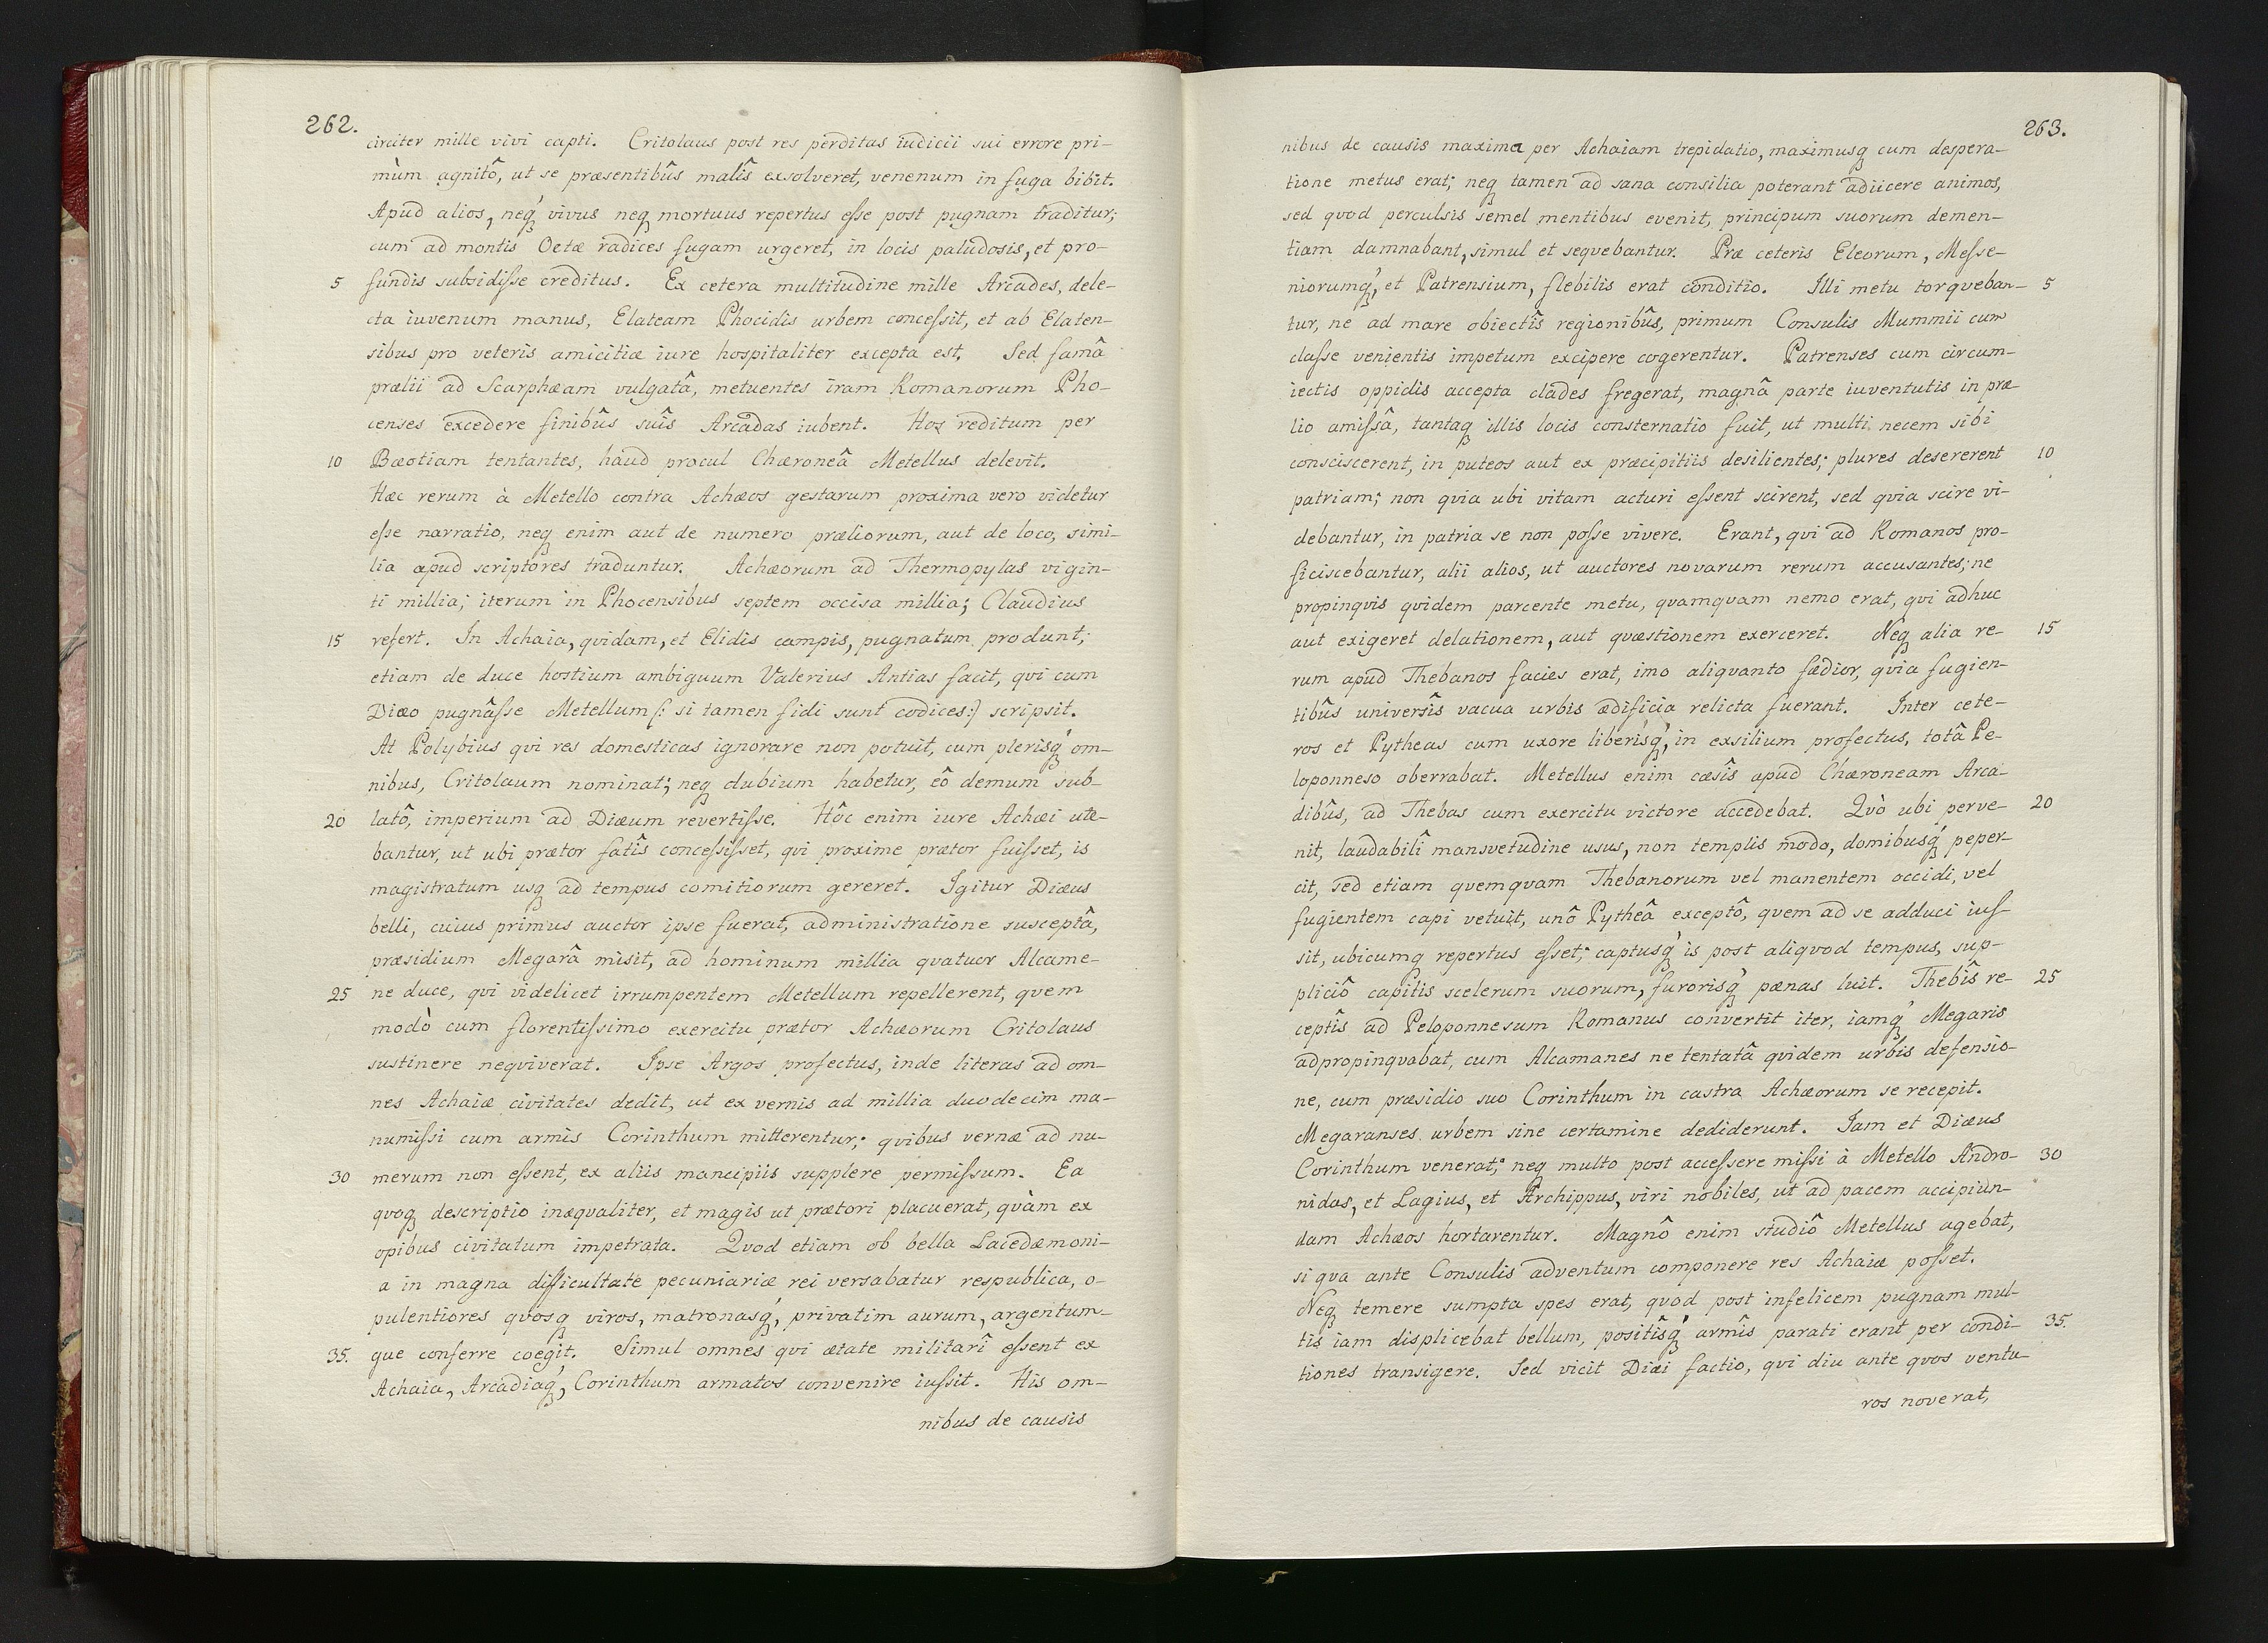 262.
circiter mille vivi capti. Critolaus post res perditas iudicii sui errore pri-
mùm agnitô, ut se præsentibûs malîs exsolveret, venenum in fuga bibit.
Apud alios, neq́ vivus neq mortuus repertus esse post pugnam traditur;
cum ad montis Oetæ radices fugam urgeret, in locis paludosis, et pro-
5 fundis subsidisse creditus. Ex cetera multitudine mille Arcades, dele-
cta iuvenum manus, Elateam Phocidis urbem concessit, et ab Elaten-
sibus pro veteris amicitiæ iure hospitaliter excepta est. Sed famâ
prælii ad Scarphæam vulgatâ, metuentes iram Romanorum Pho-
censes excedere finibûs suîs Arcadas iubent. Hos reditum per
10 Bæotiam tentantes, haud procul Chæroneâ Metellus delevit.
Hæc rerum à Metello contra Achæos gestarum proxima vero videtur
esse narratio, neq enim aut de numero præliorum, aut de loco, simi-
lia apud scriptores traduntur. Achæorum ad Thermopylas vigin-
ti millia; iterum in Phocensibus septem occisa millia; Claudius
15 refert. In Achaia, quidam, et Elidis campis, pugnatum produnt;
etiam de duce hostium ambiguum Valerius Antias facit, qui cum
Diæo pugnâsse Metellum (: si tamen fidi sunt codices:) scripsit.
At Polybius qui res domesticas ignorare non potuit, cum plerisq́ om-
nibus, Critolaum nominat; neq dubium habetur, eô demum sub-
20 latô, imperium ad Diæum revertisse. Hôc enim iure Achæi ute-
bantur, ut ubi prætor fatîs concessisset, qui proxime prætor fuisset, is
magistratum usq ad tempus comitiorum gereret. Igitur Diæus
belli, cuius primus auctor ipse fuerat, administratione susceptâ,
præsidium Megarâ misit, ad hominum millia quatuor Alcame-
25 ne duce, qui videlicet irrumpentem Metellum repellerent, quem
modò cum florentissimo exercitu prætor Achæorum Critolaus
sustinere nequiverat. Ipse Argos profectus, inde literas ad om-
nes Achaiæ civitates dedit, ut ex vernis ad millia duodecim ma-
numissi cum armis Corinthum mitterentur; quibus vernæ ad nu-
30 merum non essent, ex aliis mancipiis supplere permissum. Ea
quoq descriptio inæqualiter, et magis ut prætori placuerat, quàm ex
opibus civitatum impetrata. Quod etiam ob bella Lacedæmoni-
a in magna difficultate pecuniariæ rei versabatur respublica, o-
pulentiores quosq viros, matronasq́, privatim aurum, argentum-
35. que conferre coegit. Simul omnes qui ætate militarî essent ex
Achaia, Arcadiaq́, Corinthum armatos convenire iussit. His om-
nibus de causis
263.
nibus de causis maxima per Achaiam trepidatio, maximusq cum despera-
tione metus erat; neq tamen ad sana consilia poterant adiicere animos,
sed quod perculsis semel mentibus evenit, principum suorum demen-
tiam damnabant, simul et sequebantur. Præ ceteris Eleorum, Messe-
niorumq́, et Patrensium, flebilis erat conditio. Illi metu torqueban- 5
tur, ne ad mare obiectîs regionibûs, primum Consulis Mummii cum
classe venientis impetum excipere cogerentur. Patrenses cum circum-
iectis oppidis accepta clades fregerat, magnâ parte iuventutis in præ-
lio amissâ, tantaq illis locis consternatio fuit, ut multi necem sibi
consciscerent, in puteos aut ex præcipitiis desilientes; plures desererent 10
patriam; non quia ubi vitam acturi essent scirent, sed quia scire vi-
debantur, in patria se non posse vivere. Erant, qui ad Romanos pro-
ficiscebantur, alii alios, ut auctores novarum rerum accusantes; ne
propinquis quidem parcente metu, quamquam nemo erat, qui adhuc
aut exigeret delationem, aut quæstionem exerceret. Neq alia re- 15
rum apud Thebanos facies erat, imo aliquanto fædior, quia fugien-
tibûs universîs vacua urbis ædificia relicta fuerant. Inter cete-
ros et Pytheas cum uxore liberisq́, in exsilium profectus, totâ Pe-
loponneso oberrabat. Metellus enim cæsîs apud Chæroneam Arca-
dibûs, ad Thebas cum exercitu victore accedebat. Quò ubi perve- 20
nit, laudabilî mansuetudine usus, non templis modo, domibusq́ peper-
cit, sed etiam quemquam Thebanorum vel manentem occidi, vel
fugientem capi vetuit, unô Pytheâ exceptô, quem ad se adduci ius-
sit, ubicumq repertus esset; captusq́ is post aliquod tempus, sup-
pliciô capitis scelerum suorum, furorisq́ pænas luit. Thebîs re- 25
ceptîs ad Peloponnesum Romanus convertit iter, iamq́ Megaris
adpropinquabat, cum Alcamanes ne tentatâ quidem urbis defensio-
ne, cum præsidio suo Corinthum in castra Achæorum se recepit.
Megaranses urbem sine certamine dediderunt. Iam et Diæus
Corinthum venerat; neq multo post accessere missi à Metello Andro- 30
nidas, et Lagius, et Archippus, viri nobiles, ut ad pacem accipiun-
dam Achæos hortarentur. Magnô enim studiô Metellus agebat,
si qua ante Consulis adventum componere res Achaiæ posset.
Neq temere sumpta spes erat, quod post infelicem pugnam mul-
tis iam displicebat bellum, positîsq́ armîs parati erant per condi- 35.
tiones transigere. Sed vicit Diæi factio, qui diu ante quos ventu-
ros noverat,